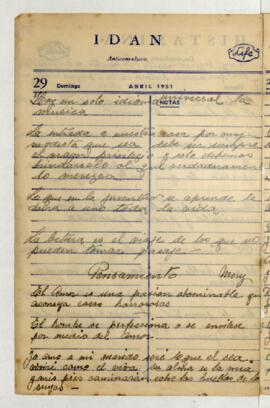 IDAN
Anticonvulsivo.
Life
29 Domingo ABRIL 1951
NOTAS
Hay un solo idioma universal la
musica
La entrada a nuestra casa por muy
modesta que sea debe ser siempre
el mayor privilegio y solo debemos
al que verdaderamente
lo merezca.
Lo que en la juventud se aprende le
a uno toda la vida
La lectura es el viaje de los que no
pueden tomar pasaje.
Pensamiento Mery
El Amor es una pasion abominable que
aconseja cosas horrorosas
El hombre se perfecciona o se envilece
por medio del Amor.
yo amo a mi marido sere lo que el sea
vivire como el viva, su alma es la mia
y mis pies caminaran sobre las huellas de los
suyos -